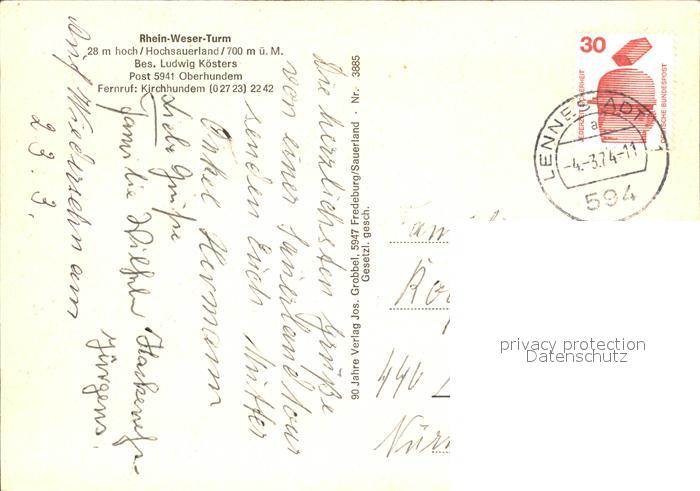 Rhein-Weser-Turm
28 m hoch / Hochsauerland / 700 m ü. M.
Bes. Ludwig Kösters
Post 5941 Oberhundem
Fernruf: Kirchhundem (0 27 23) 22 42
Die herzlichsten Grüße
von einer Sauerland Tour
senden Euch Mutter
Onkel Hermann
Liebe Grüße
Familie Wilhelm
Jürgens.
Auf Wiedersehn am
23. 3.
90 Jahre Verlag Jos. Grobbel, 5947 Fredeburg/Sauerland · Nr. 3885
Gesetzl. gesch.
30
JEDERZEIT SICHERHEIT
DEUTSCHE BUNDESPOST
LENNESTADT 1
a
-4.-3.74-11
594
Fam
446
privacy protection
Datenschutz